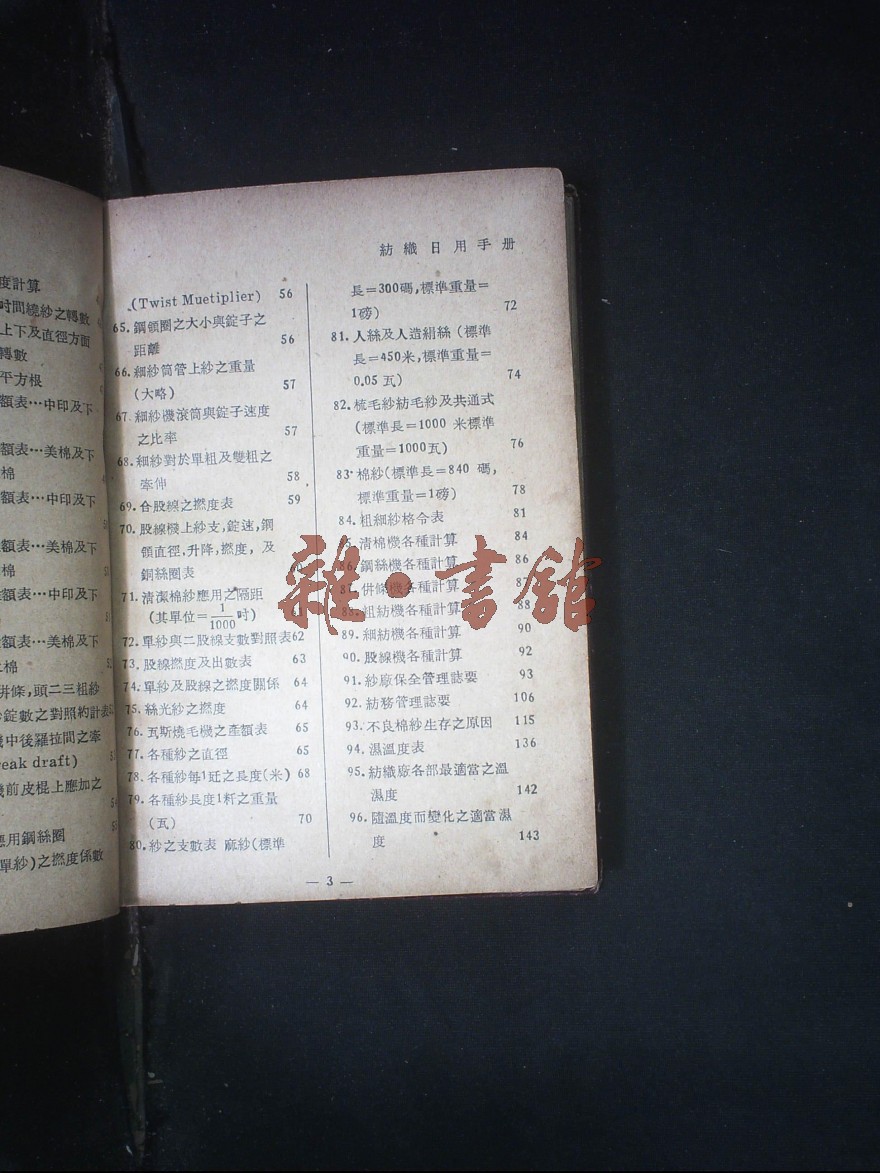 度計算
吋間繞紗之轉數
上下及直徑方面
轉數
平方根
額表…中印及下
額表…美棉及下
棉
額表…中印及下
額表…美棉及下
棉
額表…中印及下
額表…美棉及下
棉
併條,頭二三粗紗
錠數之對照約計表
機中後羅拉間之牽
reak draft)
機前皮棍上應加之
應用鋼絲圈
單紗)之撚度係數
紡織日用手册
(Twist Muetiplier) 56
65.鋼領圈之大小與錠子之
距離 56
66.細紗筒管上紗之重量
(大略) 57
67.細紗機滾筒與錠子速度
之比率 57
68.細紗對於單粗及雙粗之
牽伸 58
69.合股線之撚度表 59
70.股線機上紗支,錠速,鋼
領直徑,升降,撚度,及
鋼絲圈表
71.清潔棉紗應用之隔距
(其單位=1/1000吋)
72.單紗與二股線支數對照表62
73.股線撚度及出數表 63
74.單紗及股線之撚度關係 64
75.絲光紗之撚度 64
76.瓦斯燒毛機之產額表 65
77.各種紗之直徑 65
78.各種紗每1瓩之長度(米) 68
79.各種紗長度1粁之重量
(瓦) 70
80.紗之支數表 麻紗(標準
長=300碼,標準重量=
1磅) 72
81.人絲及人造絹絲(標準
長=450米,標準重量=
0.05瓦) 74
82.梳毛紗紡毛紗及共通式
(標準長=1000 米標準
重量=1000瓦) 76
83.棉紗(標準長=840 碼,
標準重量=1磅) 78
84.粗細紗格令表 81
85.清棉機各種計算 84
86.鋼絲機各種計算 86
87.併條機各種計算 87
88.粗紡機各種計算 88
89.細紡機各種計算 90
90.股線機各種計算 92
91.紗廠保全管理誌要 93
92.紡務管理誌要 106
93.不良棉紗生存之原因 115
94.濕溫度表 136
95.紡織廠各部最適當之溫
濕度 142
96.隨溫度而變化之適當濕
度 143
— 3 —
雜·書館